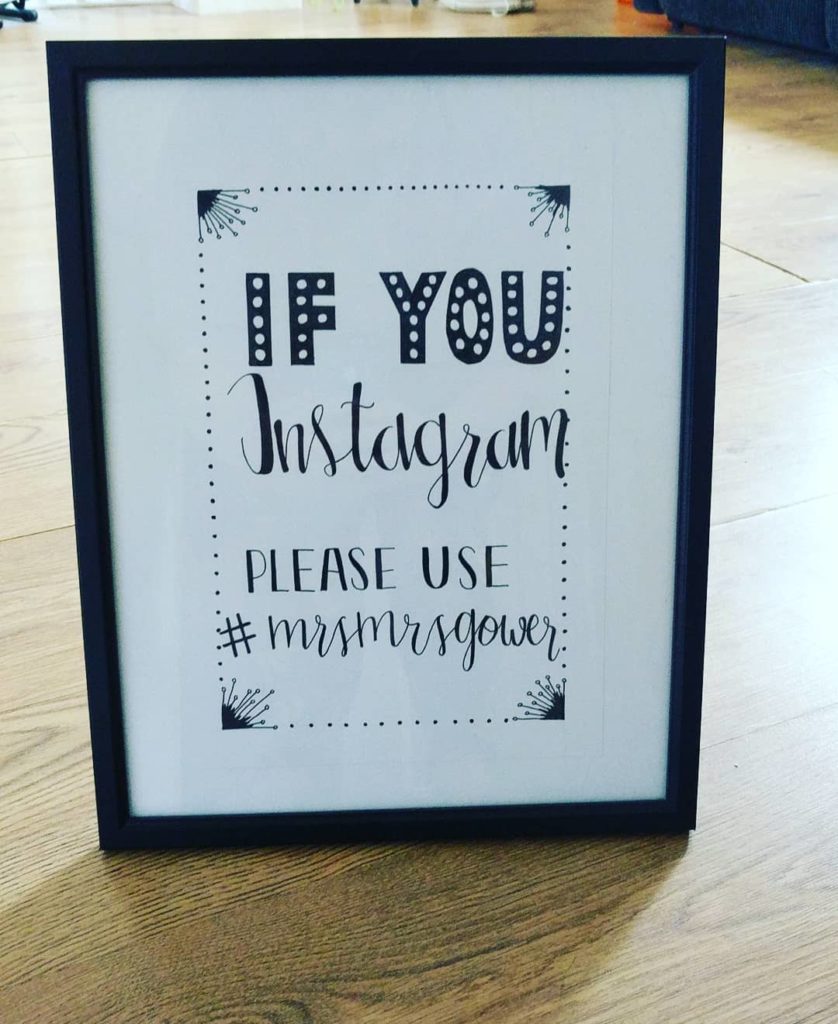 IF YOU
Instagram
PLEASE USE
#mrsmrsgower